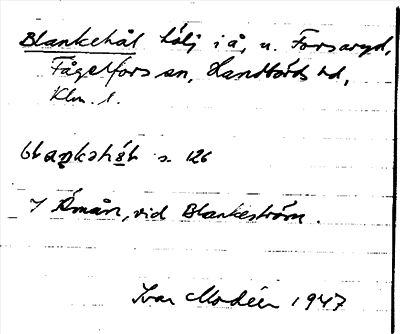 Blankehål hölj i å, u. Forsaryd,
Fågelfors sn, Handbörds hd,
Klm. l.
s. 126
I Åmån, vid Blankeström.
Ivar Modéer 1947